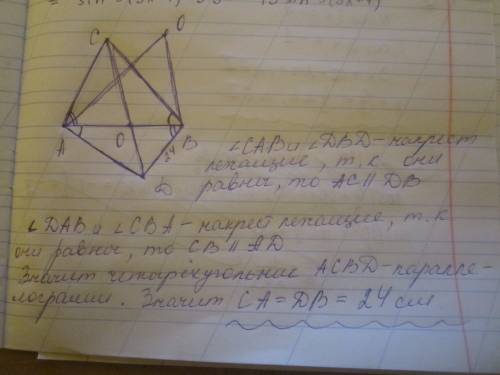 C
O
A
O
B
24
D
∠CAB и ∠DBD - накрест
лежащие, т.к они
равны, то AC || DB
∠DAB и ∠CBA - накрест лежащие, т.к
они равны, то CB || AD
Значит четырёхугольник ACBD - паралле-
лограмм. Значит CA = DB = 24 см